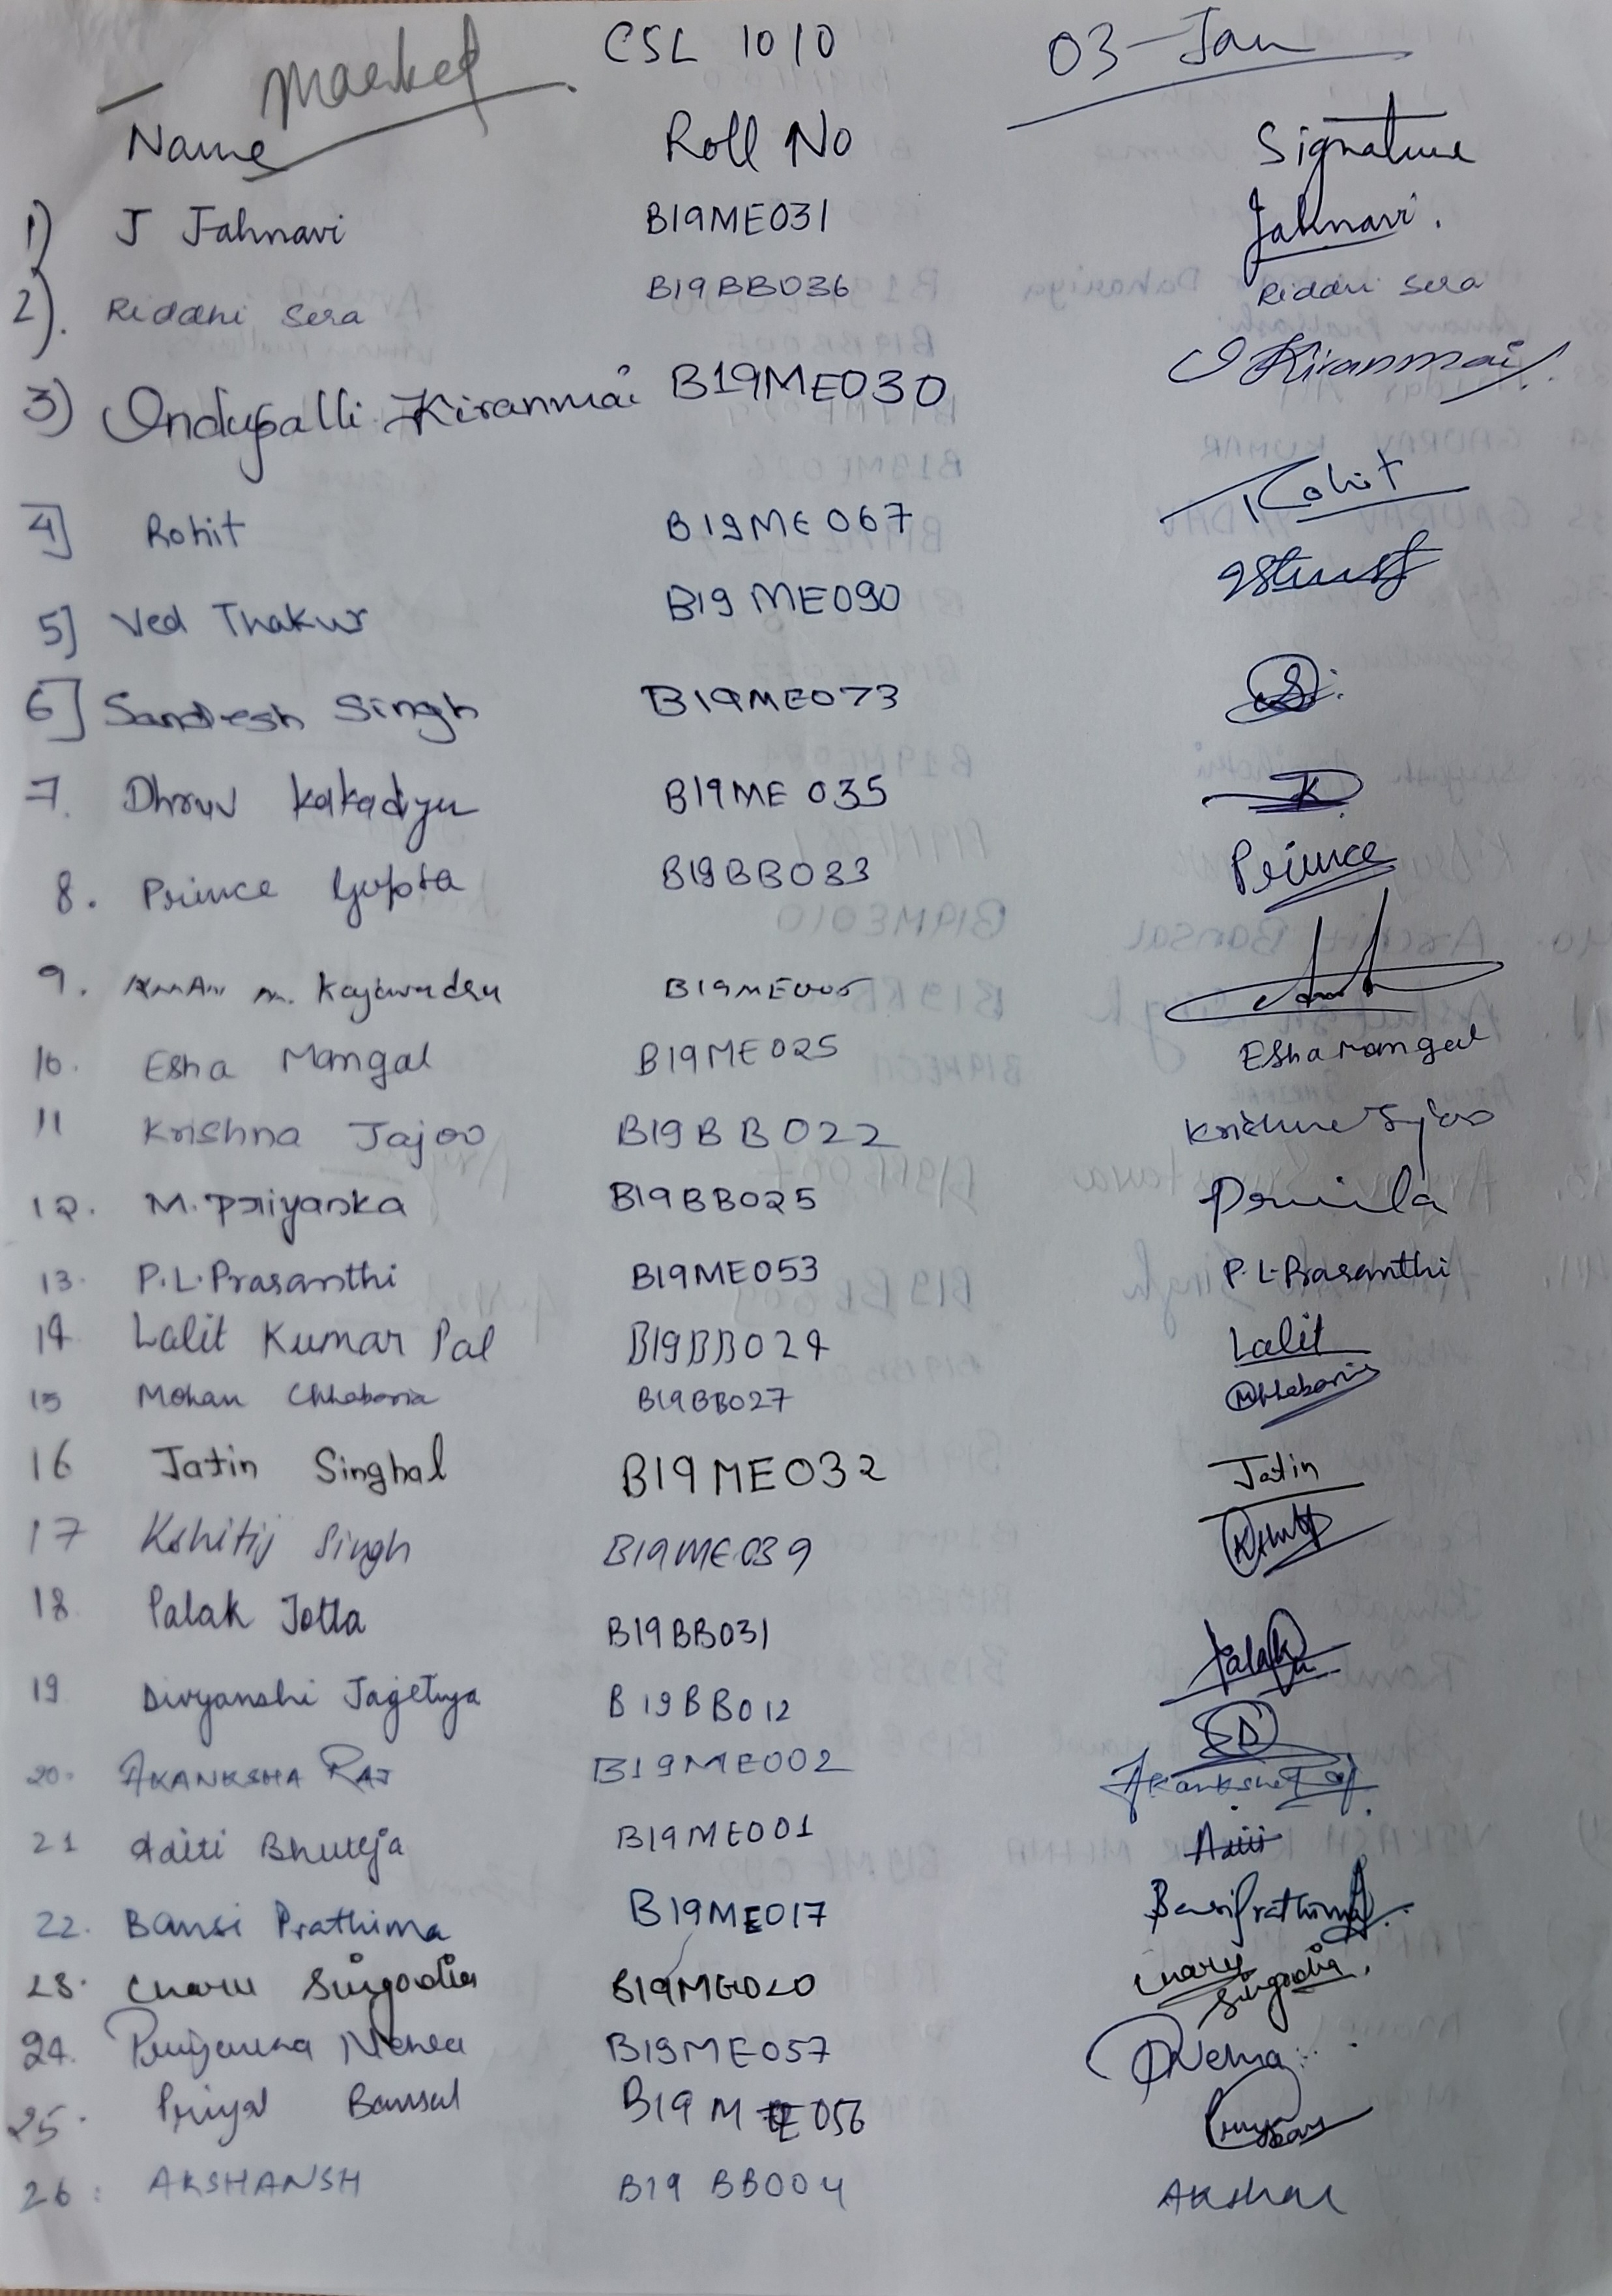 Marked CSL 1010 03-Jan
Name Roll No Signature
1) J Jahnavi B19ME031 Jahnavi.
2). Riddhi Sera B19BB036 Riddhi Sera
3) Ondupalli Kiranmai B19ME030 O Kiranmai
4] Rohit B19ME067 Rohit
5] Ved Thakur B19ME090
6] Sandesh Singh B19ME073
7. Dhruv Kakadiya B19ME035
8. Prince Gupta B19BB033 Prince
9. m. B19ME005
10. Esha Mangal B19ME025 Esha Mangal
11 Krishna Jajoo B19BB022 Krishna Jajoo
12. M. Priyanka B19BB025
13. P.L.Prasanthi B19ME053 P.L.Prasanthi
14 Lalit Kumar Pal B19BB024 Lalit
15 Mohan Chhabaria B19BB027 MChhabaria
16 Jatin Singhal B19ME032 Jatin
17 Kshitij Singh B19ME039 Kshitij
18 Palak Jotla B19BB031 Palak
19 Divyanshi Jagetiya B19BB012 D
20. AKANKSHA RAJ B19ME002 Akanksha Raj
21 Aditi Bhuteja B19ME001 Aditi
22. Bansi Prathima B19ME017 Bansi Prathima
23. Charu Singodia B19ME020 Charu Singodia.
24. Priyansha Nehra B19ME057 PNehra
25. Priyal Bansal B19ME056
26: AKSHANSH B19BB004